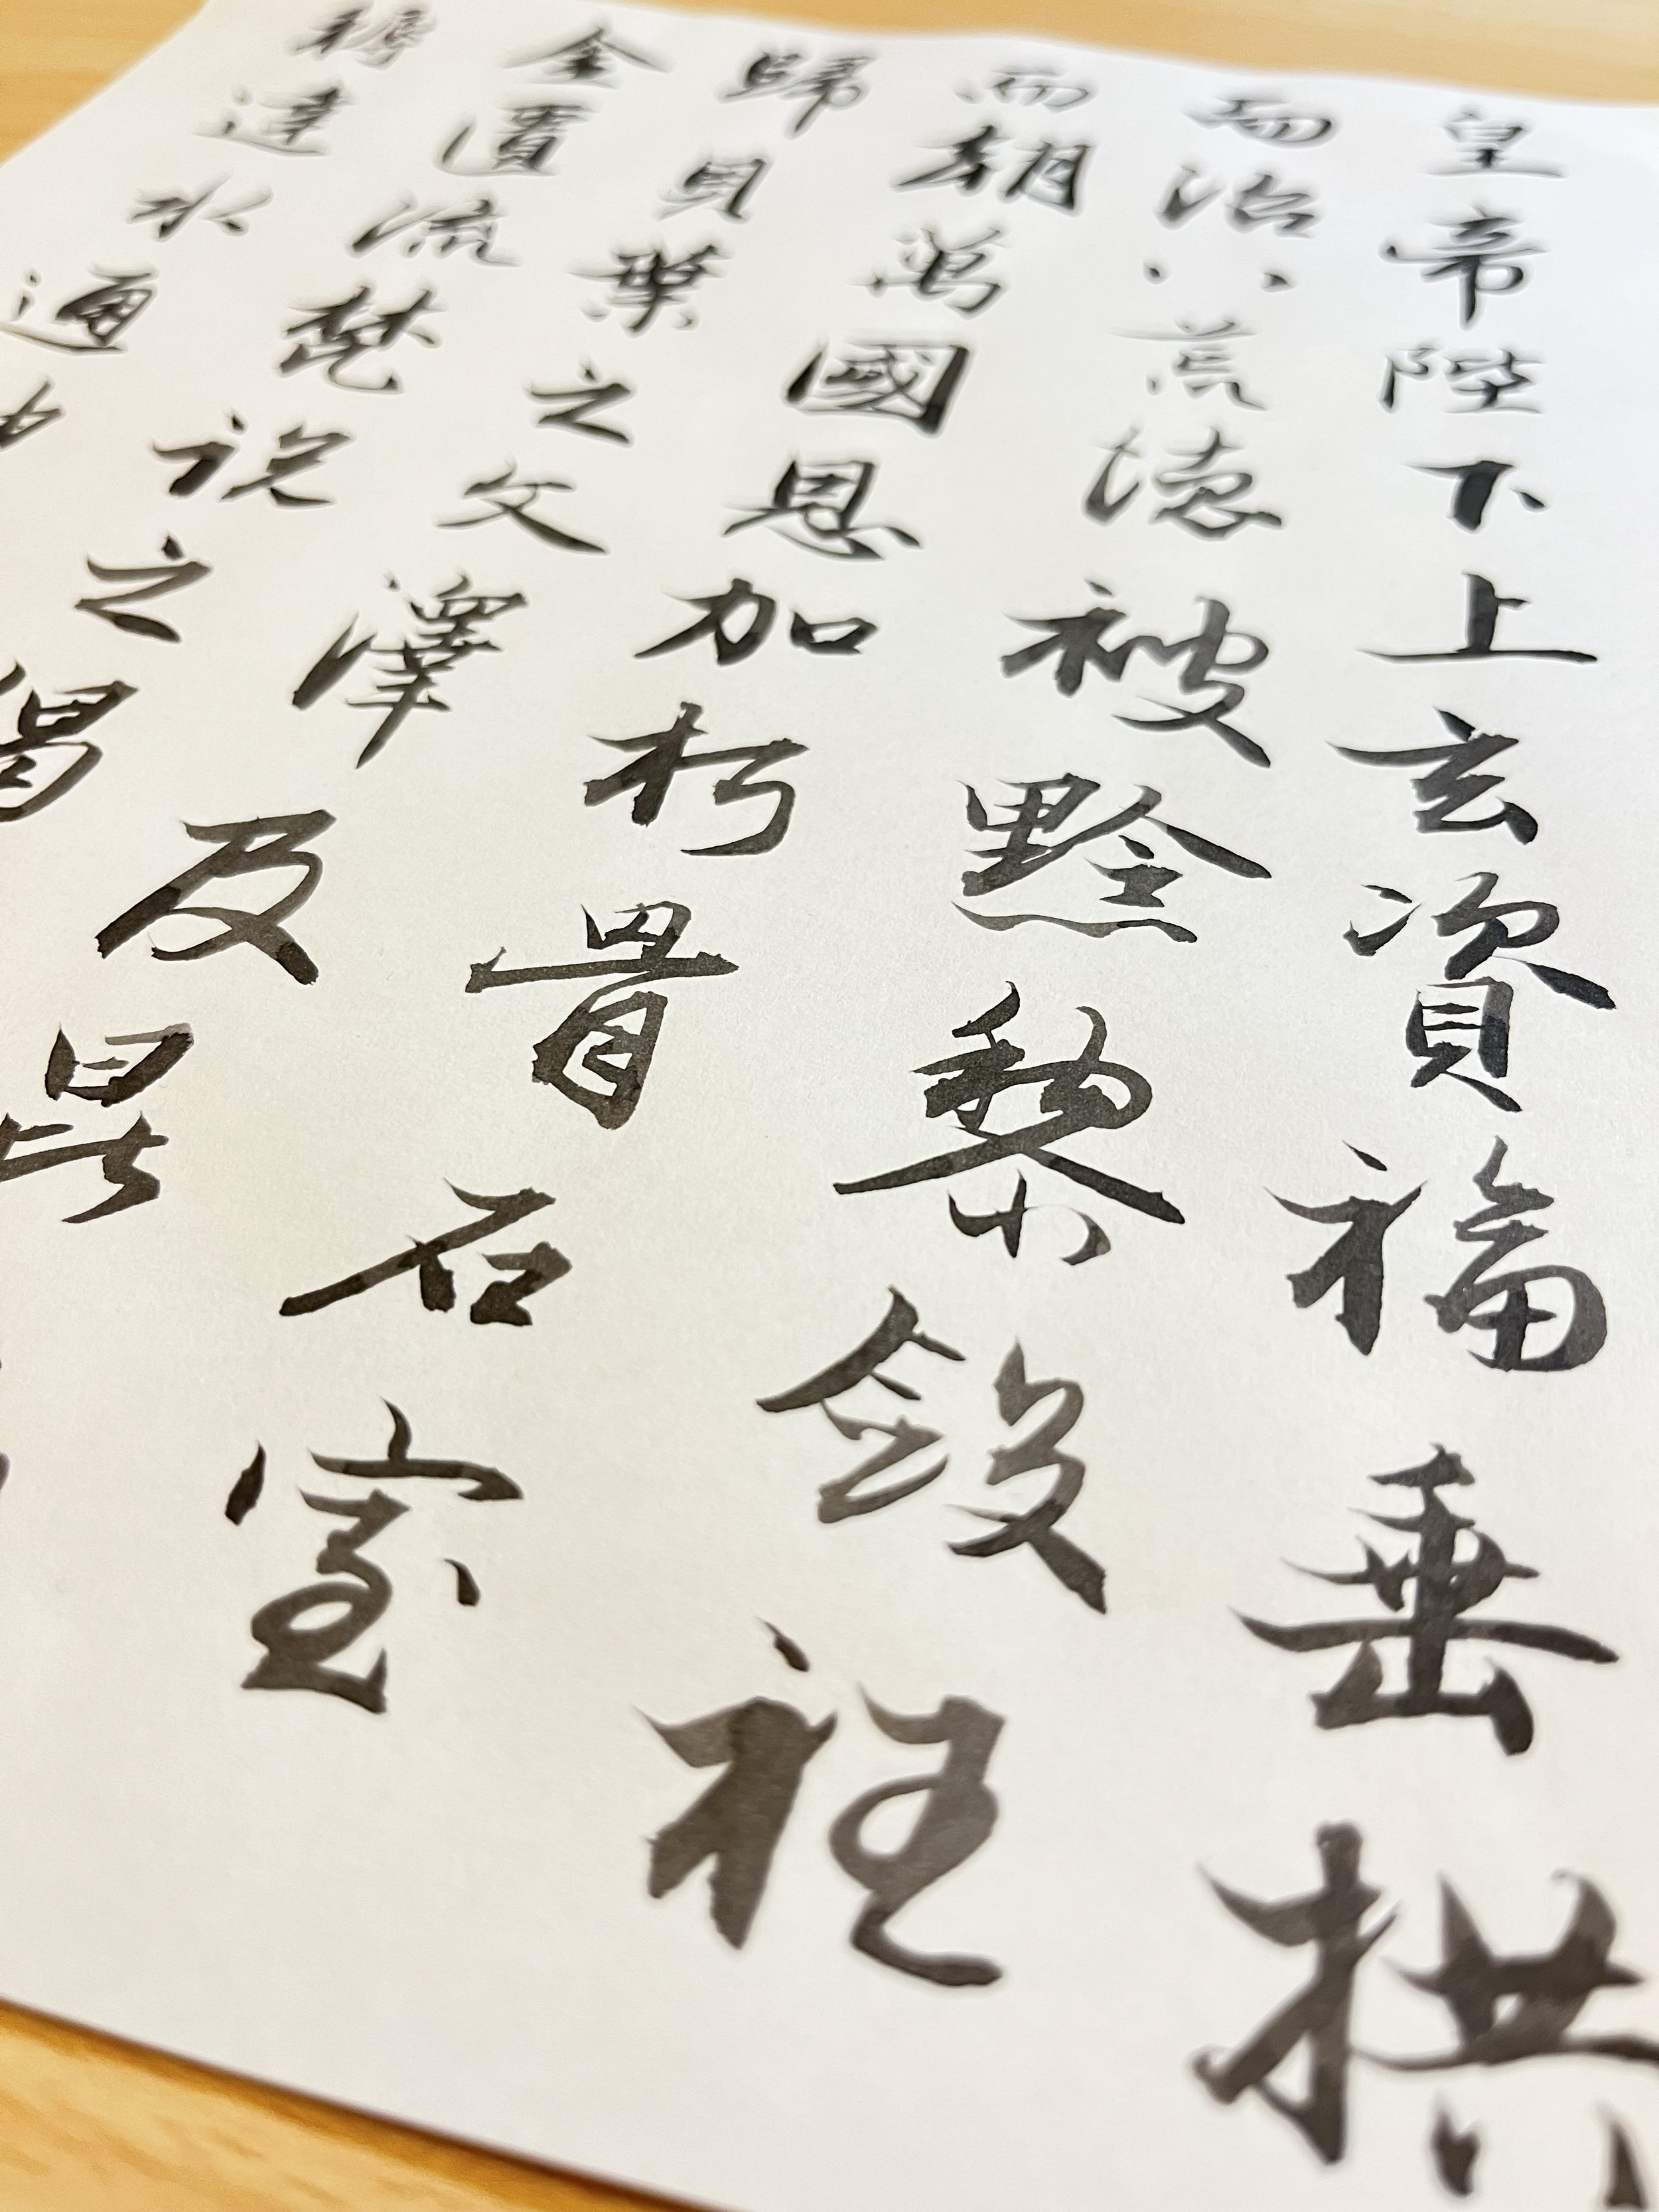 皇帝陛下上玄資福垂拱
而治八荒德被黔黎斂衽
而朝萬國恩加朽骨石室
歸貝葉之文澤及昆
金匱流梵説之偈
耨達水通